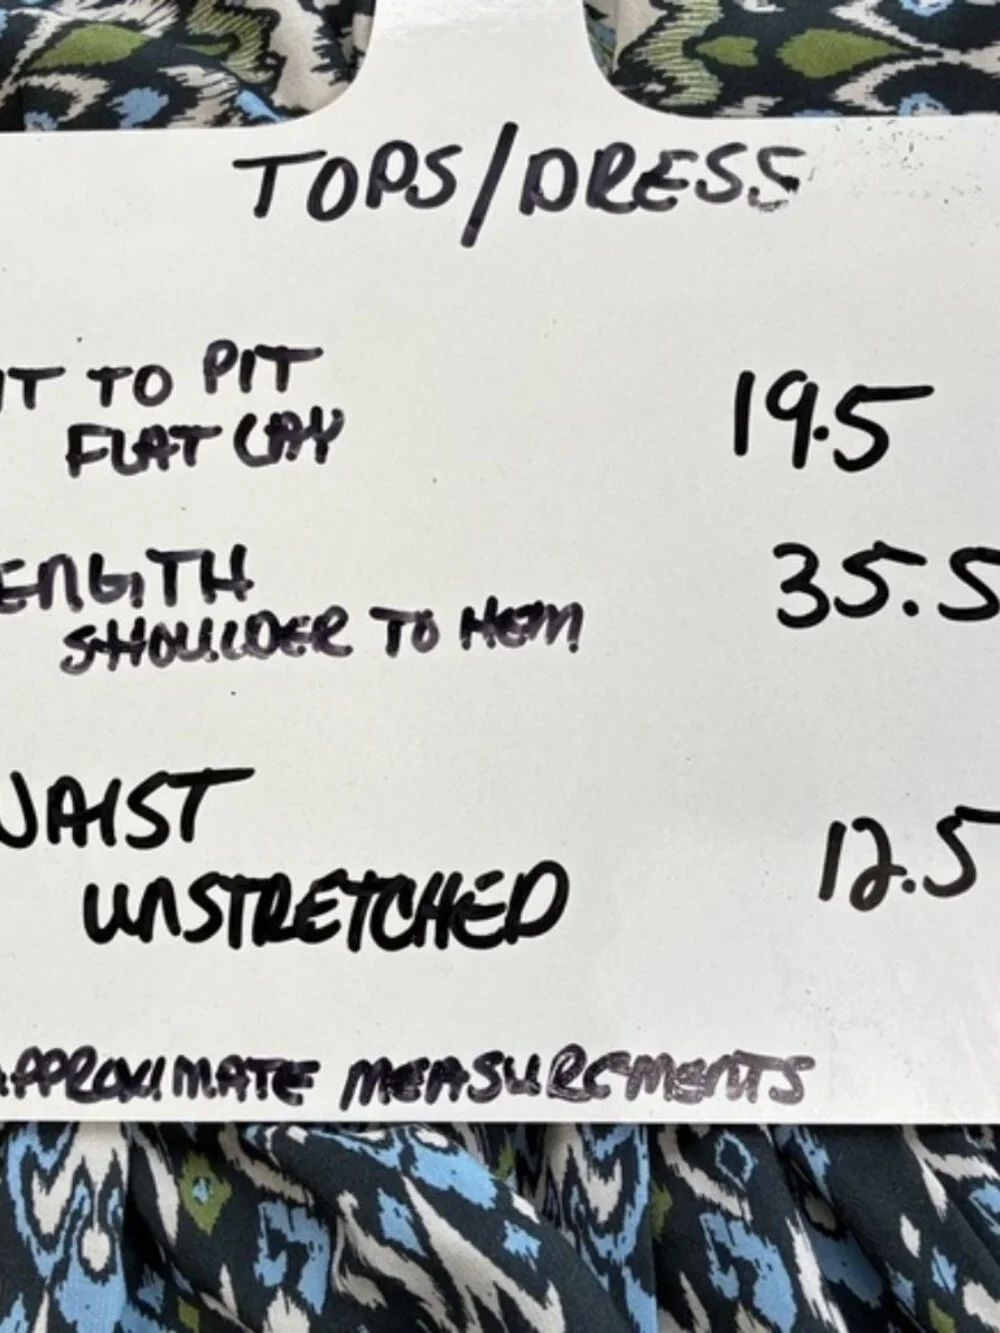 TOPS/DRESS
IT TO PIT 19.5
FLAT LAY
ENGTH 35.5
SHOULDER TO HEM
WAIST 12.5
UNSTRETCHED
APPROXIMATE MEASUREMENTS